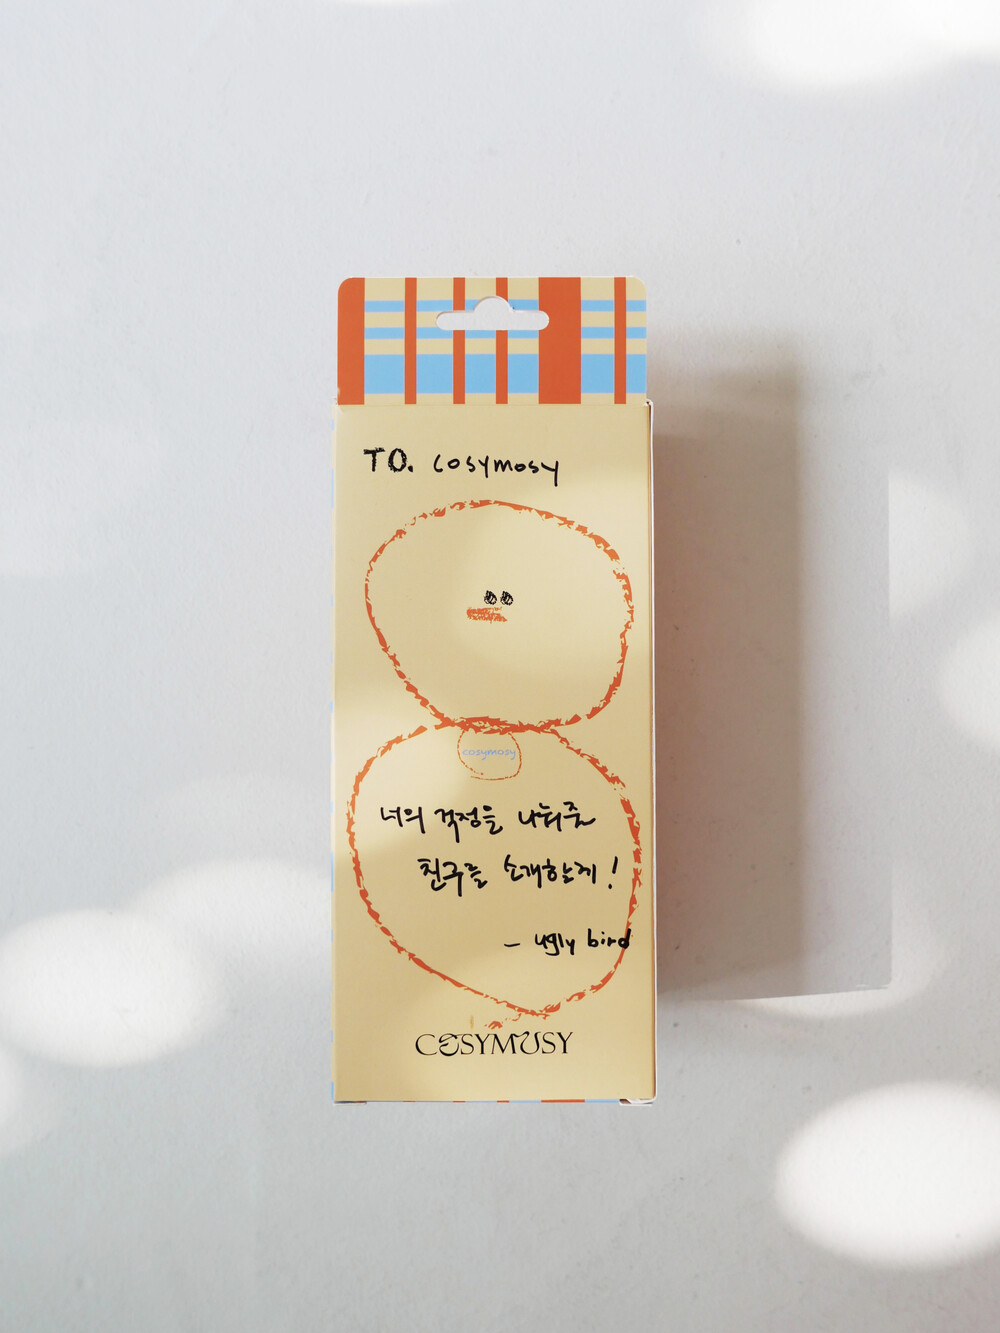 TO. cosymosy
cosymosy
너의 걱정을 나눠줄
친구를 소개할게!
- ugly bird
COSYMOSY